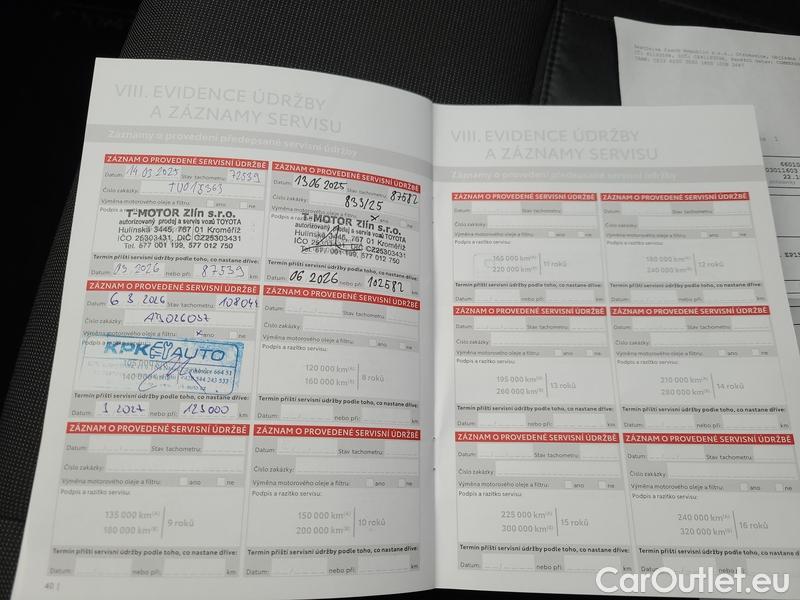 VIII. EVIDENCE ÚDRŽBY
A ZÁZNAMY SERVISU
Záznamy o provedení předepsané servisní údržby
ZÁZNAM O PROVEDENÉ SERVISNÍ ÚDRŽBĚ
Datum: 14.03.2025 Stav tachometru: 72539
Číslo zakázky:
Výměna motorového oleje a filtru: ano ne
T-MOTOR Zlín s.r.o.
autorizovaný prodej a servis vozů TOYOTA
Hulínská 3445, 767 01 Kroměříž
IČO 25303431, DIČ CZ25303431
Tel. 577 001 199, 577 012 750
03.2026 87539
ZÁZNAM O PROVEDENÉ SERVISNÍ ÚDRŽBĚ
Datum: 13.06.2025 Stav tachometru: 87582
Číslo zakázky: 833/25
Výměna motorového oleje a filtru: ano ne
T-MOTOR Zlín s.r.o.
autorizovaný prodej a servis vozů TOYOTA
Hulínská 3445, 767 01 Kroměříž
IČO 25303431, DIČ CZ25303431
Tel. 577 001 199, 577 012 750
Termín příští servisní údržby podle toho, co nastane dříve:
06.2026 102582
ZÁZNAM O PROVEDENÉ SERVISNÍ ÚDRŽBĚ
Datum: 6 3 2026 Stav tachometru:
Číslo zakázky:
Výměna motorového oleje a filtru: x ano ne
KPK AUTO
Termín příští servisní údržby podle toho, co nastane dříve:
Datum: 3 2027 nebo při: 123000 km
ZÁZNAM O PROVEDENÉ SERVISNÍ ÚDRŽBĚ
Datum: Stav tachometru: km
Číslo zakázky:
Výměna motorového oleje a filtru: ano ne
Podpis a razítko servisu:
120 000 km(A)
160 000 km(B)
8 roků
Termín příští servisní údržby podle toho, co nastane dříve:
Datum: nebo při: km
ZÁZNAM O PROVEDENÉ SERVISNÍ ÚDRŽBĚ
Datum: Stav tachometru: km
Číslo zakázky:
Výměna motorového oleje a filtru: ano ne
Podpis a razítko servisu:
135 000 km(A)
180 000 km(B)
9 roků
Termín příští servisní údržby podle toho, co nastane dříve:
Datum: nebo při: km
ZÁZNAM O PROVEDENÉ SERVISNÍ ÚDRŽBĚ
Datum: Stav tachometru: km
Číslo zakázky:
Výměna motorového oleje a filtru: ano ne
Podpis a razítko servisu:
150 000 km(A)
200 000 km(B)
10 roků
Termín příští servisní údržby podle toho, co nastane dříve:
Datum: nebo při: km
40 |
VIII. EVIDENCE ÚDRŽBY
A ZÁZNAMY SERVISU
Záznamy o provedení předepsané servisní údržby
ZÁZNAM O PROVEDENÉ SERVISNÍ ÚDRŽBĚ
Datum: Stav tachometru: km
Číslo zakázky:
Výměna motorového oleje a filtru: ano ne
Podpis a razítko servisu:
165 000 km(A)
220 000 km(B)
11 roků
Termín příští servisní údržby podle toho, co nastane dříve:
Datum: nebo při: km
ZÁZNAM O PROVEDENÉ SERVISNÍ ÚDRŽBĚ
Datum: Stav tachometru:
Číslo zakázky:
Výměna motorového oleje a filtru: ano ne
Podpis a razítko servisu:
180 000 km(A)
240 000 km(B)
12 roků
Termín příští servisní údržby podle toho, co nastane dříve:
Datum: nebo při:
ZÁZNAM O PROVEDENÉ SERVISNÍ ÚDRŽBĚ
Datum: Stav tachometru: km
Číslo zakázky:
Výměna motorového oleje a filtru: ano ne
Podpis a razítko servisu:
195 000 km(A)
260 000 km(B)
13 roků
Termín příští servisní údržby podle toho, co nastane dříve:
Datum: nebo při: km
ZÁZNAM O PROVEDENÉ SERVISNÍ ÚDRŽBĚ
Datum: Stav tachometru:
Číslo zakázky:
Výměna motorového oleje a filtru: ano ne
Podpis a razítko servisu:
210 000 km(A)
280 000 km(B)
14 roků
Termín příští servisní údržby podle toho, co nastane dříve:
Datum: nebo při:
ZÁZNAM O PROVEDENÉ SERVISNÍ ÚDRŽBĚ
Datum: Stav tachometru: km
Číslo zakázky:
Výměna motorového oleje a filtru: ano ne
Podpis a razítko servisu:
225 000 km(A)
300 000 km(B)
15 roků
Termín příští servisní údržby podle toho, co nastane dříve:
Datum: nebo při: km
ZÁZNAM O PROVEDENÉ SERVISNÍ ÚDRŽBĚ
Datum: Stav tachometru:
Číslo zakázky:
Výměna motorového oleje a filtru: ano
Podpis a razítko servisu:
240 000 km(A)
320 000 km(B)
16 roků
Termín příští servisní údržby podle toho, co nastane dříve:
Datum: nebo při:
CarOutlet.eu